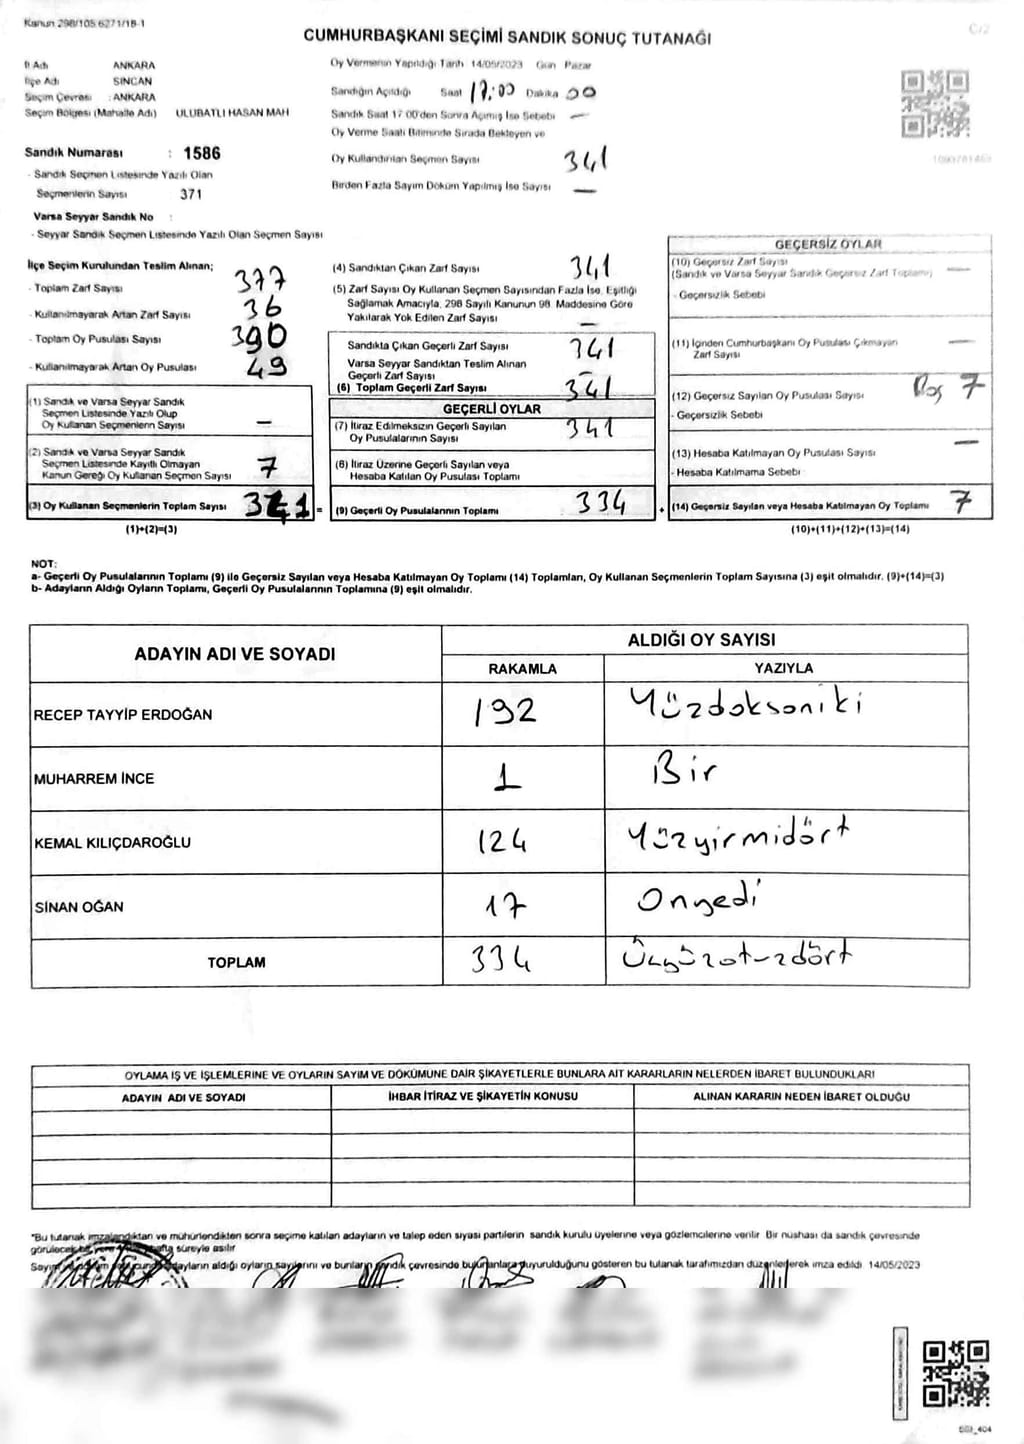 Kanun 298/105 6271/18-1
CUMHURBAŞKANI SEÇİMİ SANDIK SONUÇ TUTANAĞI
C/2
İl Adı ANKARA
İlçe Adı SİNCAN
Seçim Çevresi : ANKARA
Seçim Bölgesi (Mahalle Adı) ULUBATLI HASAN MAH
Sandık Numarası : 1586
- Sandık Seçmen Listesinde Yazılı Olan
Seçmenlerin Sayısı 371
Varsa Seyyar Sandık No :
- Seyyar Sandık Seçmen Listesinde Yazılı Olan Seçmen Sayısı
Oy Vermenin Yapıldığı Tarih 14/05/2023 Gün Pazar
Sandığın Açıldığı Saat 17:00 Dakika 00
Sandık Saat 17 00'den Sonra Açımış İse Sebebi —
Oy Verme Saati Bitiminde Sırada Bekleyen ve
Oy Kullandırılan Seçmen Sayısı 341
Birden Fazla Sayım Döküm Yapılmış İse Sayısı —
İlçe Seçim Kurulundan Teslim Alınan;
- Toplam Zarf Sayısı 377
- Kullanılmayarak Artan Zarf Sayısı 36
- Toplam Oy Pusulası Sayısı 390
- Kullanılmayarak Artan Oy Pusulası 49
(1) Sandık ve Varsa Seyyar Sandık
Seçmen Listesinde Yazılı Olup
Oy Kullanan Seçmenlerin Sayısı —
(2) Sandık ve Varsa Seyyar Sandık
Seçmen Listesinde Kayıtlı Olmayan
Kanun Gereği Oy Kullanan Seçmen Sayısı 7
(3) Oy Kullanan Seçmenlerin Toplam Sayısı 341 =
(1)+(2)=(3)
(4) Sandıktan Çıkan Zarf Sayısı 341
(5) Zarf Sayısı Oy Kullanan Seçmen Sayısından Fazla İse, Eşitliği
Sağlamak Amacıyla, 298 Sayılı Kanunun 98. Maddesine Göre
Yakılarak Yok Edilen Zarf Sayısı —
Sandıkta Çıkan Geçerli Zarf Sayısı 341
Varsa Seyyar Sandıktan Teslim Alınan
Geçerli Zarf Sayısı
(6) Toplam Geçerli Zarf Sayısı 341
GEÇERLİ OYLAR
(7) İtiraz Edilmeksizin Geçerli Sayılan
Oy Pusulalarının Sayısı 341
(8) İtiraz Üzerine Geçerli Sayılan veya
Hesaba Katılan Oy Pusulası Toplamı
(9) Geçerli Oy Pusulalarının Toplamı 334 +
GEÇERSİZ OYLAR
(10) Geçersiz Zarf Sayısı
(Sandık ve Varsa Seyyar Sandık Geçersiz Zarf Toplamı) —
- Geçersizlik Sebebi
(11) İçinden Cumhurbaşkanı Oy Pusulası Çıkmayan
Zarf Sayısı —
(12) Geçersiz Sayılan Oy Pusulası Sayısı Boş 7
- Geçersizlik Sebebi
(13) Hesaba Katılmayan Oy Pusulası Sayısı —
- Hesaba Katılmama Sebebi
(14) Geçersiz Sayılan veya Hesaba Katılmayan Oy Toplamı 7
(10)+(11)+(12)+(13)=(14)
NOT:
a- Geçerli Oy Pusulalarının Toplamı (9) ile Geçersiz Sayılan veya Hesaba Katılmayan Oy Toplamı (14) Toplamları, Oy Kullanan Seçmenlerin Toplam Sayısına (3) eşit olmalıdır. (9)+(14)=(3)
b- Adayların Aldığı Oyların Toplamı, Geçerli Oy Pusulalarının Toplamına (9) eşit olmalıdır.
ADAYIN ADI VE SOYADI
ALDIĞI OY SAYISI
RAKAMLA YAZIYLA
RECEP TAYYİP ERDOĞAN 192 Yüzdoksaniki
MUHARREM İNCE 1 Bir
KEMAL KILIÇDAROĞLU 124 Yüzyirmidört
SİNAN OĞAN 17 Onyedi
TOPLAM 334 Üçyüzotuzdört
OYLAMA İŞ VE İŞLEMLERİNE VE OYLARIN SAYIM VE DÖKÜMÜNE DAİR ŞİKAYETLERLE BUNLARA AİT KARARLARIN NELERDEN İBARET BULUNDUKLARI
ADAYIN ADI VE SOYADI İHBAR İTİRAZ VE ŞİKAYETİN KONUSU ALINAN KARARIN NEDEN İBARET OLDUĞU
*Bu tutanak imzalandıktan ve mühürlendikten sonra seçime katılan adayların ve talep eden siyasi partilerin sandık kurulu üyelerine veya gözlemcilerine verilir Bir nüshası da sandık çevresinde
görülecek bir yere hafta süreyle asılır
adayların aldığı oyların sayılarını ve bunların sandık çevresinde bulunanlara duyurulduğunu gösteren bu tutanak tarafımızdan düzenlenerek imza edildi 14/05/2023